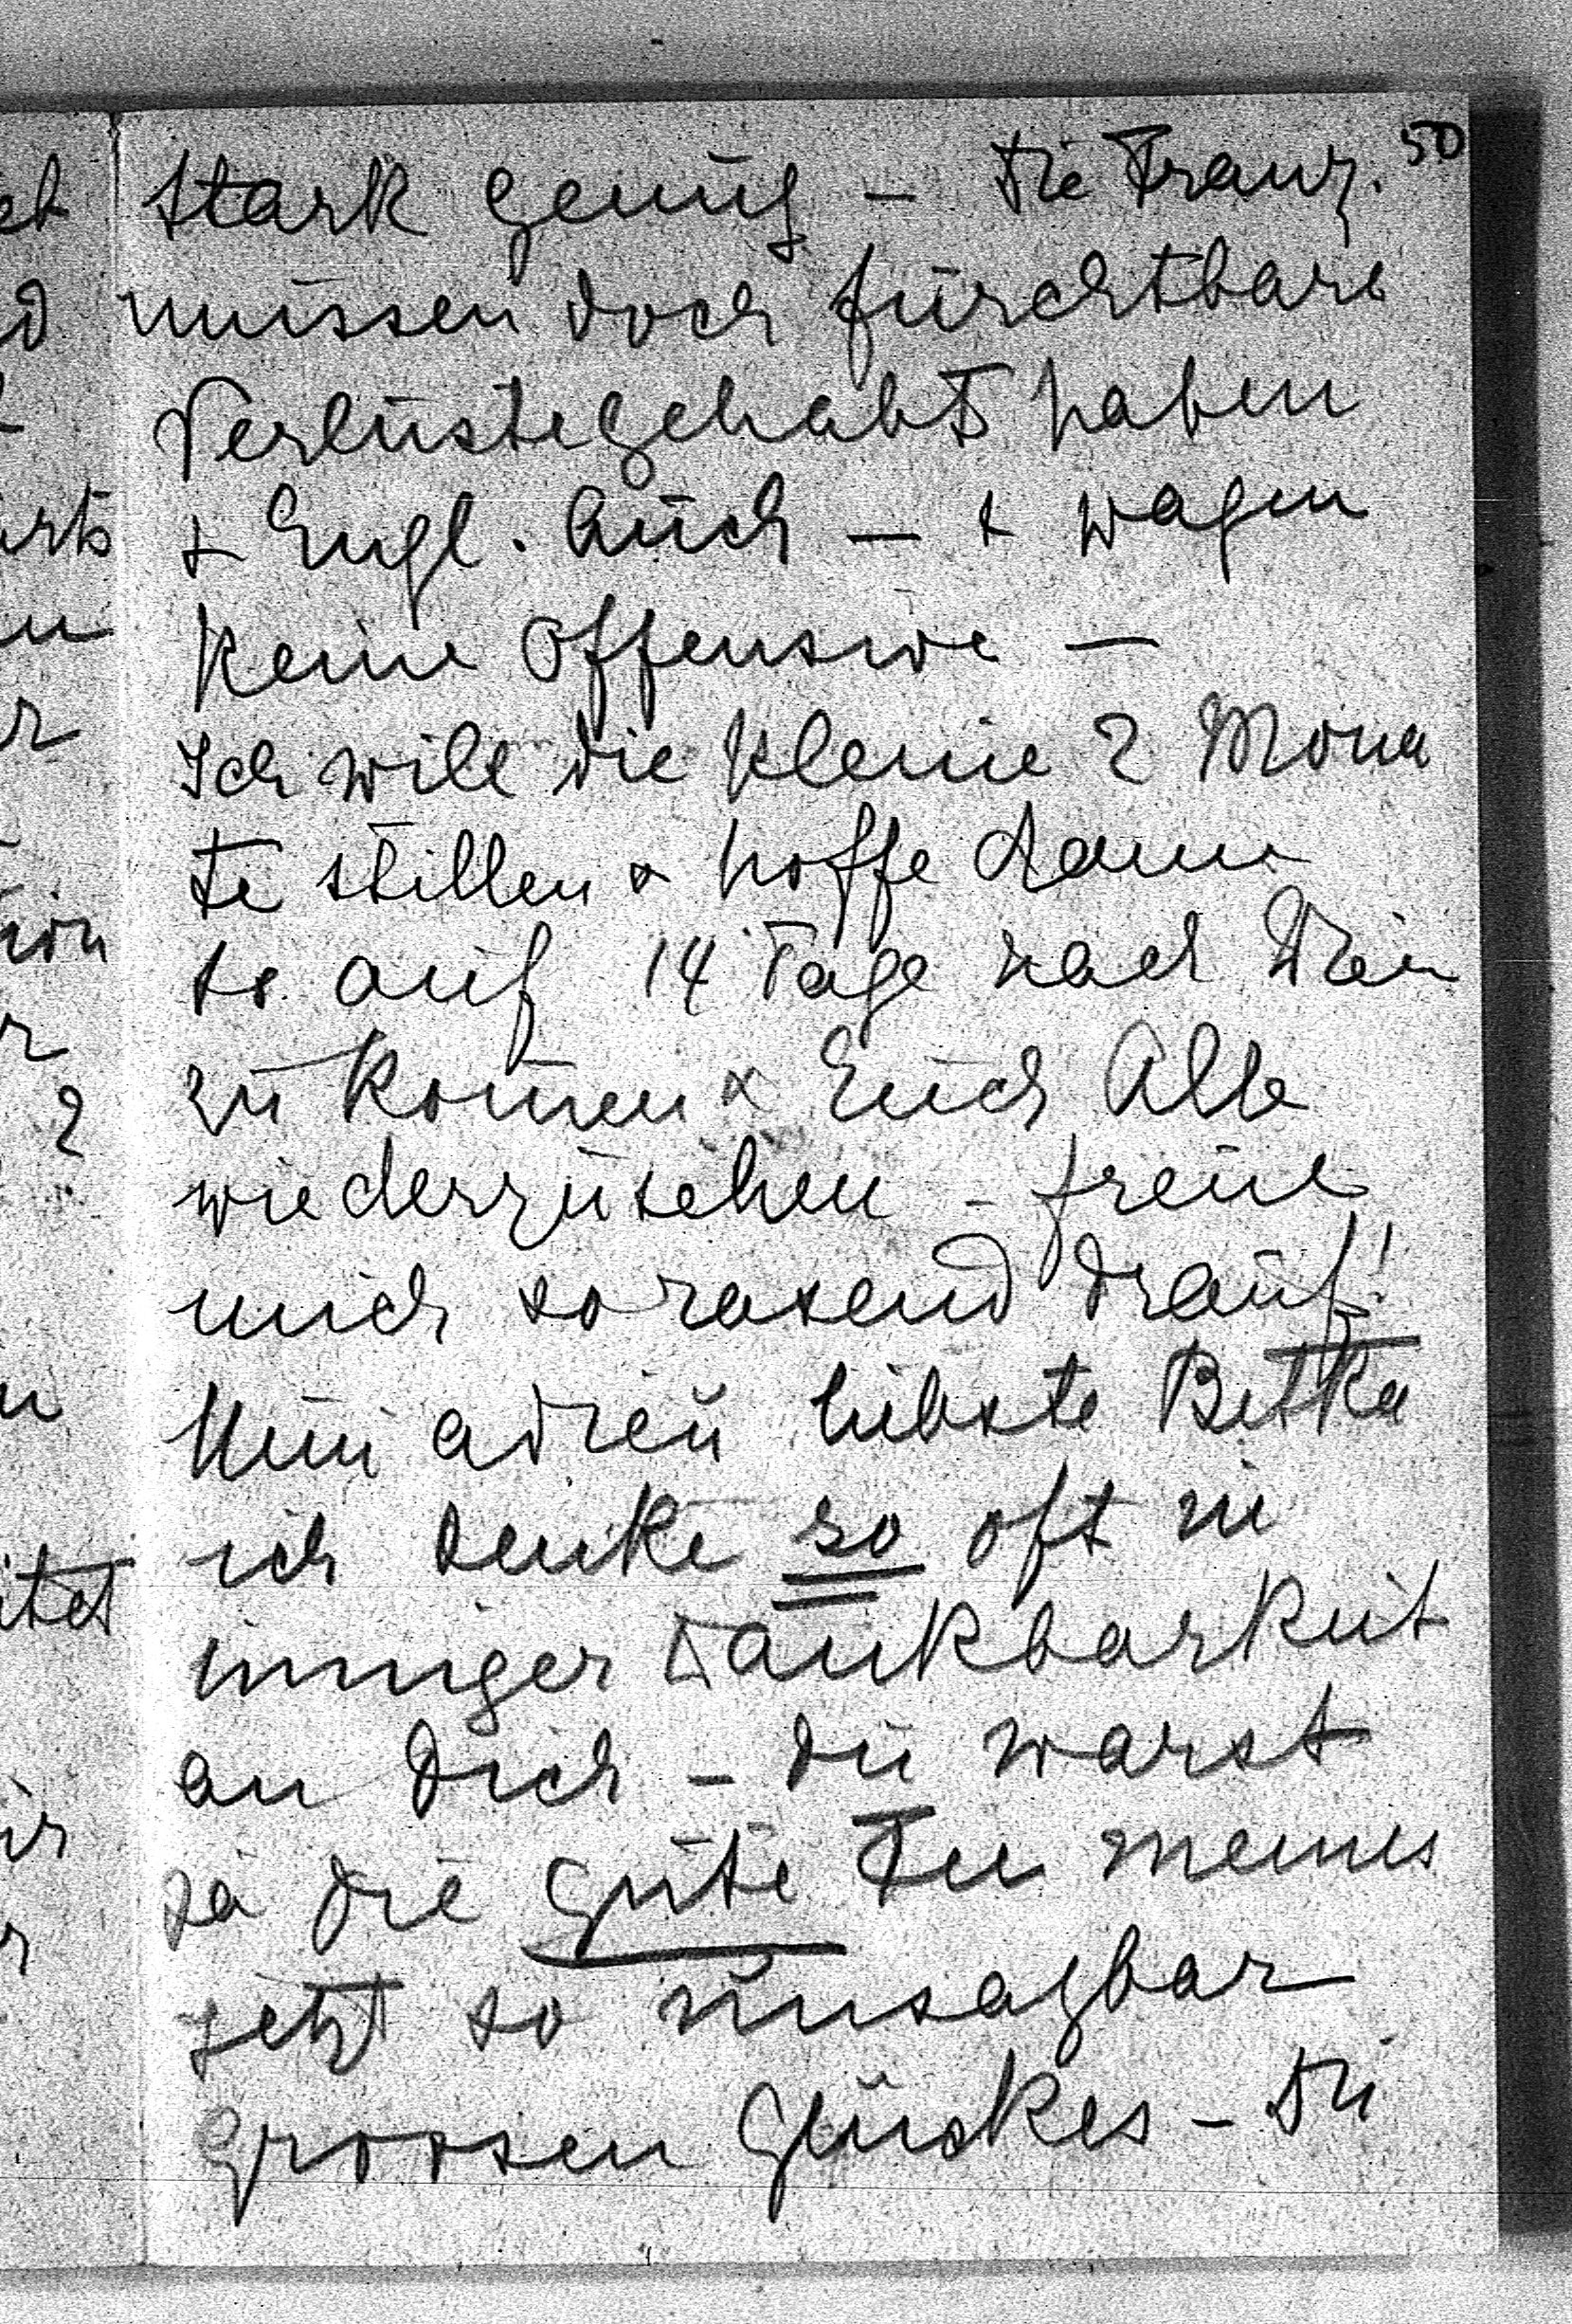 50
stark genug – die Franz.
müssen doch fürchtbare
Verluste gehabt haben
& Engl. auch – & wagen
keine Offensive –
Ich will die Kleine 2 Mona
te stillen & hoffe dann
so auf 14 Tage nach Wien
zu kom̄en & Euch Alle
wiederzusehen – freue
mich so rasend drauf!
Nun adieu liebste Betka
ich denke so oft in
inniger Dankbarkeit
an Dich – du warst
ja die gute Fee meines
jetzt so unsagbar
groosen Glückes – Die